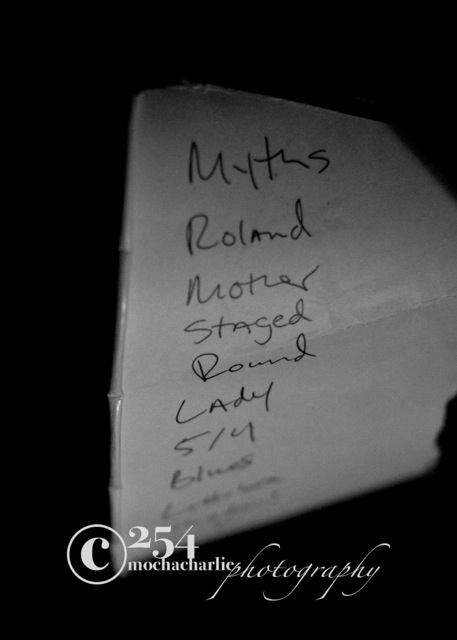 Myths
Roland
Mother
Staged
Round
Lady
5/4
Blues
© 254
mochacharlie photography